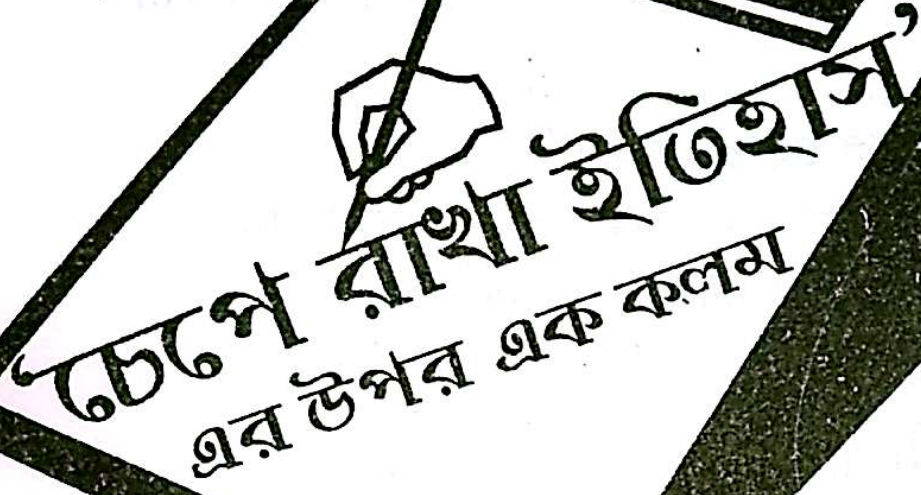 ‘চেপে রাখা ইতিহাস’
এর উপর এক কলম